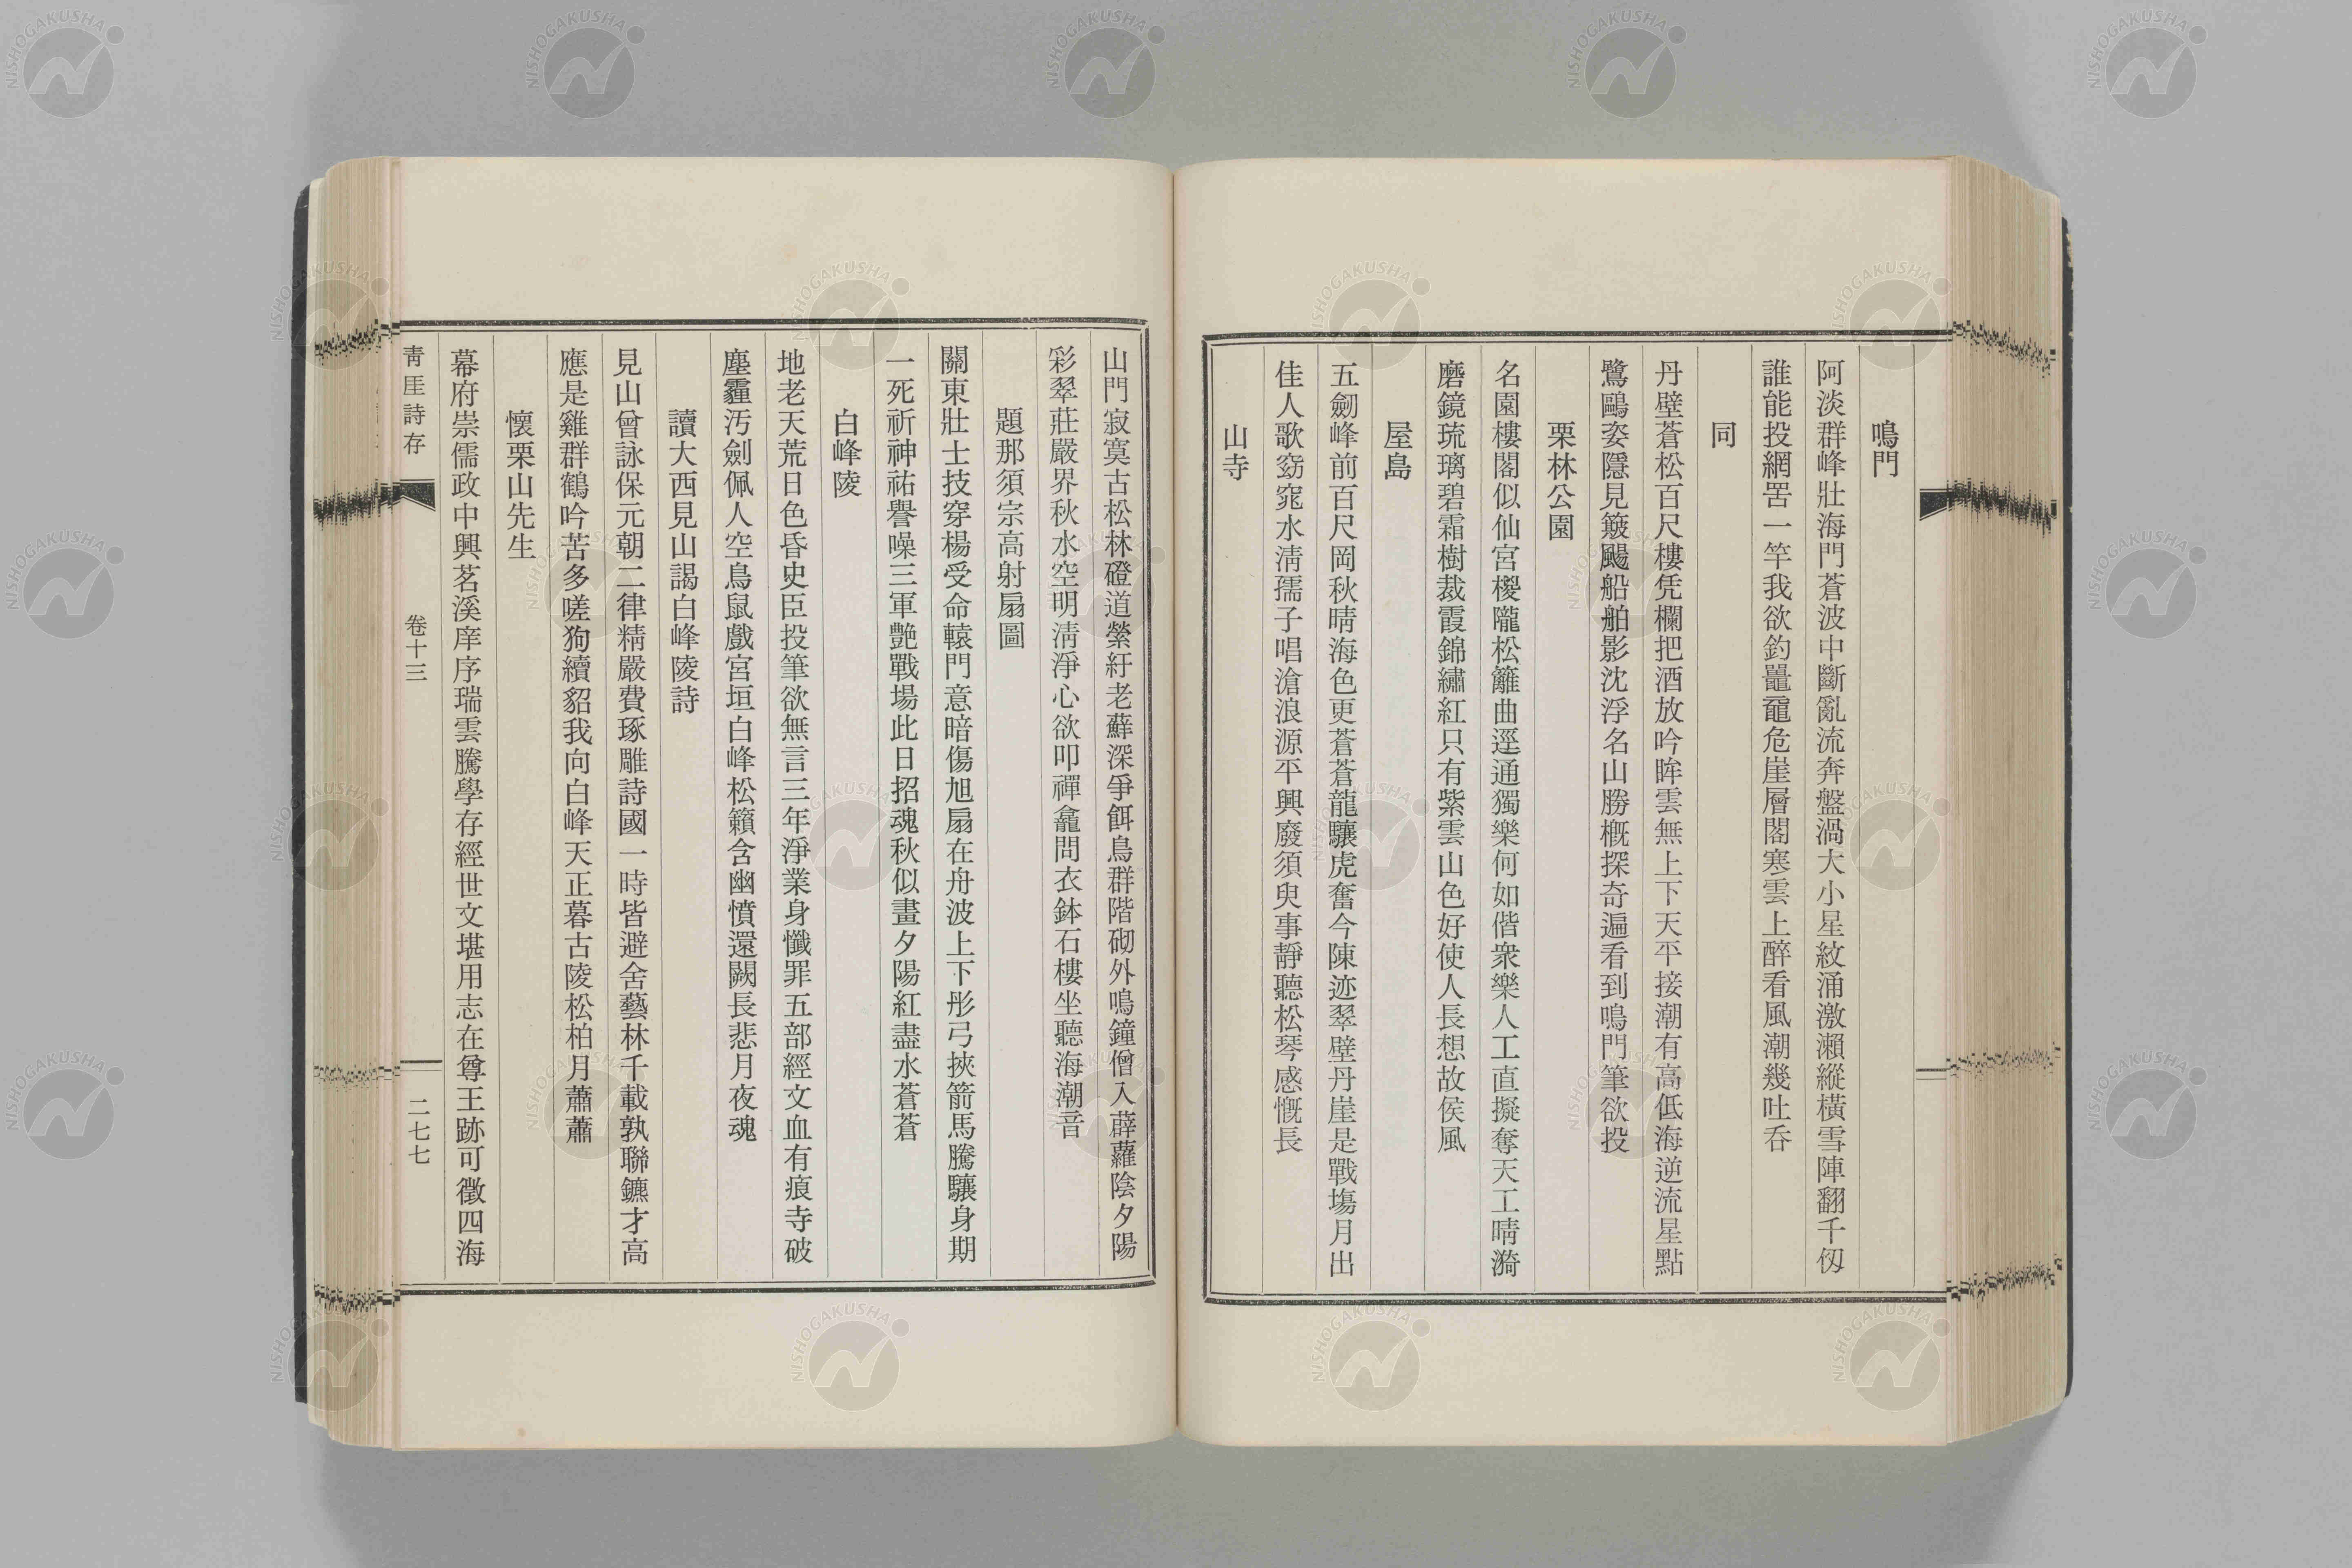 鳴門
阿淡群峰壯海門蒼波中斷亂流奔盤渦大小星紋涌激瀨縱橫雪陣翻千仭
誰能投網罟一竿我欲釣鼉黿危崖層閣寒雲上醉看風潮幾吐呑
同
丹壁蒼松百尺樓凭欄把酒放吟眸雲無上下天平接潮有高低海逆流星點
鷺鷗姿隱見簸颺船舶影沈浮名山勝概探奇遍看到鳴門筆欲投
栗林公園
名園樓閣似仙宮櫻隴松籬曲逕通獨樂何如偕衆樂人工直擬奪天工晴漪
磨鏡琉璃碧霜樹裁霞錦繡紅只有紫雲山色好使人長想故侯風
屋島
五劒峰前百尺岡秋晴海色更蒼蒼龍驤虎奮今陳迹翠壁丹崖是戰塲月出
佳人歌窈窕水淸孺子唱滄浪源平興廢須臾事靜聽松琴感慨長
山寺
山門寂寞古松林磴道縈紆老蘚深爭餌鳥群階砌外鳴鐘僧入薜蘿陰夕陽
彩翠莊嚴界秋水空明淸淨心欲叩禪龕問衣鉢石樓坐聽海潮音
題那須宗高射扇圖
關東壯士技穿楊受命轅門意暗傷旭扇在舟波上下彤弓挾箭馬騰驤身期
一死祈神祐譽噪三軍艶戰場此日招魂秋似畫夕陽紅盡水蒼蒼
白峰陵
地老天荒日色昏史臣投筆欲無言三年淨業身懺罪五部經文血有痕寺破
塵霾汚劍佩人空鳥鼠戲宮垣白峰松籟含幽憤還闕長悲月夜魂
讀大西見山謁白峰陵詩
見山曾詠保元朝二律精嚴費琢雕詩國一時皆避舍藝林千載孰聯鑣才高
應是雞群鶴吟苦多嗟狗續貂我向白峰天正暮古陵松柏月蕭蕭
懷栗山先生
幕府崇儒政中興茗溪庠序瑞雲騰學存經世文堪用志在尊王跡可徵四海
靑厓詩存
卷十三
二七七
NISHOGAKUSHA